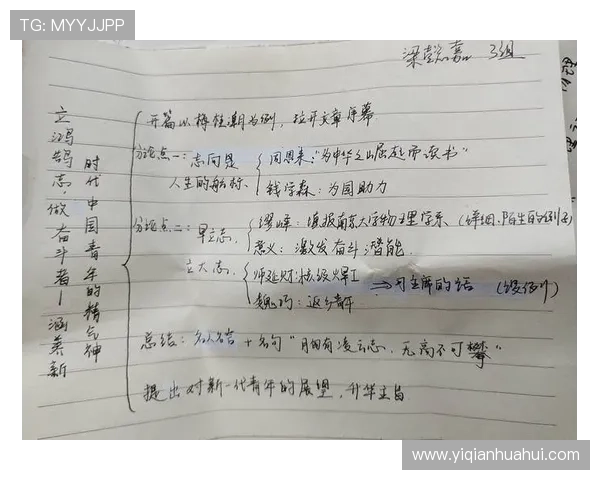 TG: MYYJJPP
梁懿嘉 3组
立鸿鹄志·做奋斗者—涵养新
时代中国青年的精气神
开篇以梅桂潮为例，拉开文章序幕
分论点一：志向是
人生的航标.
周恩来："为中华之崛起而读书"
钱学森：为国助力
分论点二：早立志，
缪峰：填报南京大学物理学系（详细、陌生的例子）
意义：激发奋斗潜能.
立大志，
师延财：技级焊工
魏巧：返乡青年
⇒习主席的话（段例）
总结：名人名言 + 名句"自有凌云志，无高不可攀"
提出对新一代青年的展望，升华主旨
www.yiqianhuahui.com